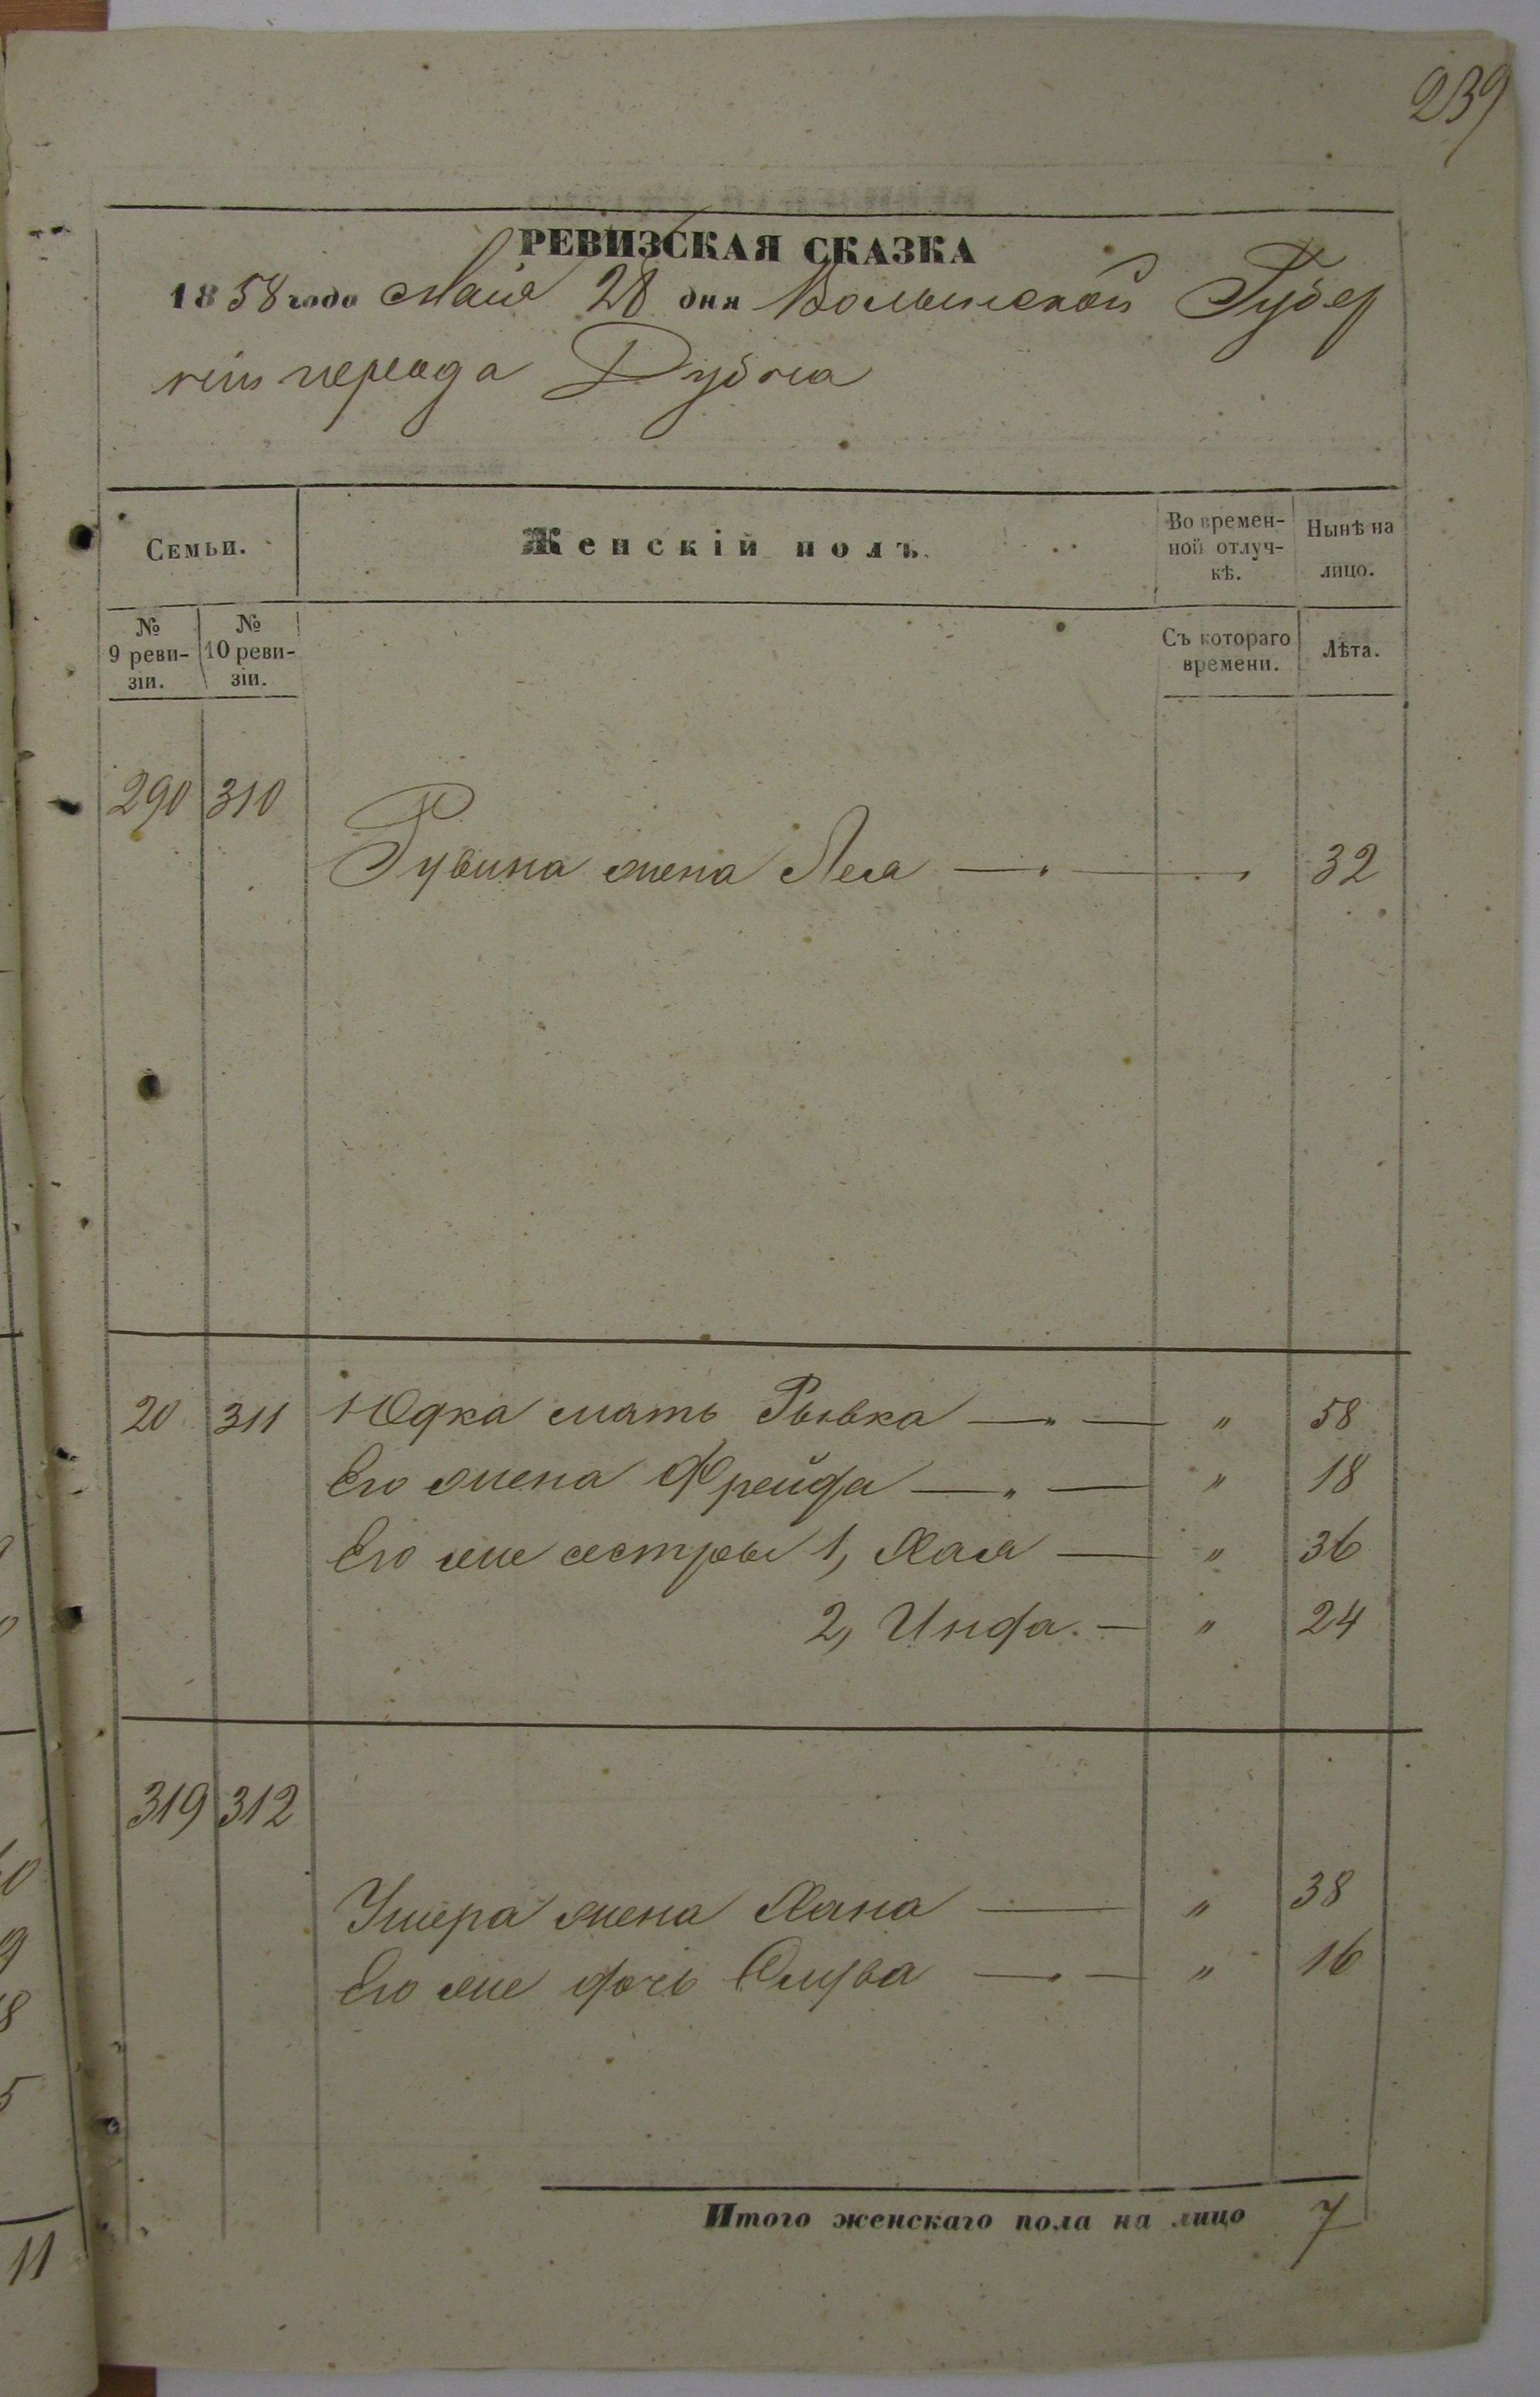 239
РЕВИЗСКАЯ СКАЗКА
1858 года Маія 28 дня Волынской Губер
ніи города Дубна
Семьи.
Женскій полъ.
Во времен-
ной отлуч-
кѣ.
Нынѣ на
лицо.
№
9 реви-
зіи.
№
10 реви-
зіи.
Съ котораго
времени.
Лѣта.
290 310
Рувина жена Лея — 32
20 311 Юдка мать Рывка — " 58
Его жена Фрейда — " 18
Его же сестры 1, Хая — " 36
2, Инда — " 24
319 312
Ушера жена Хана — " 38
Его же дочь — " 16
Итого женскаго пола на лицо 7
0
9
8
5
11